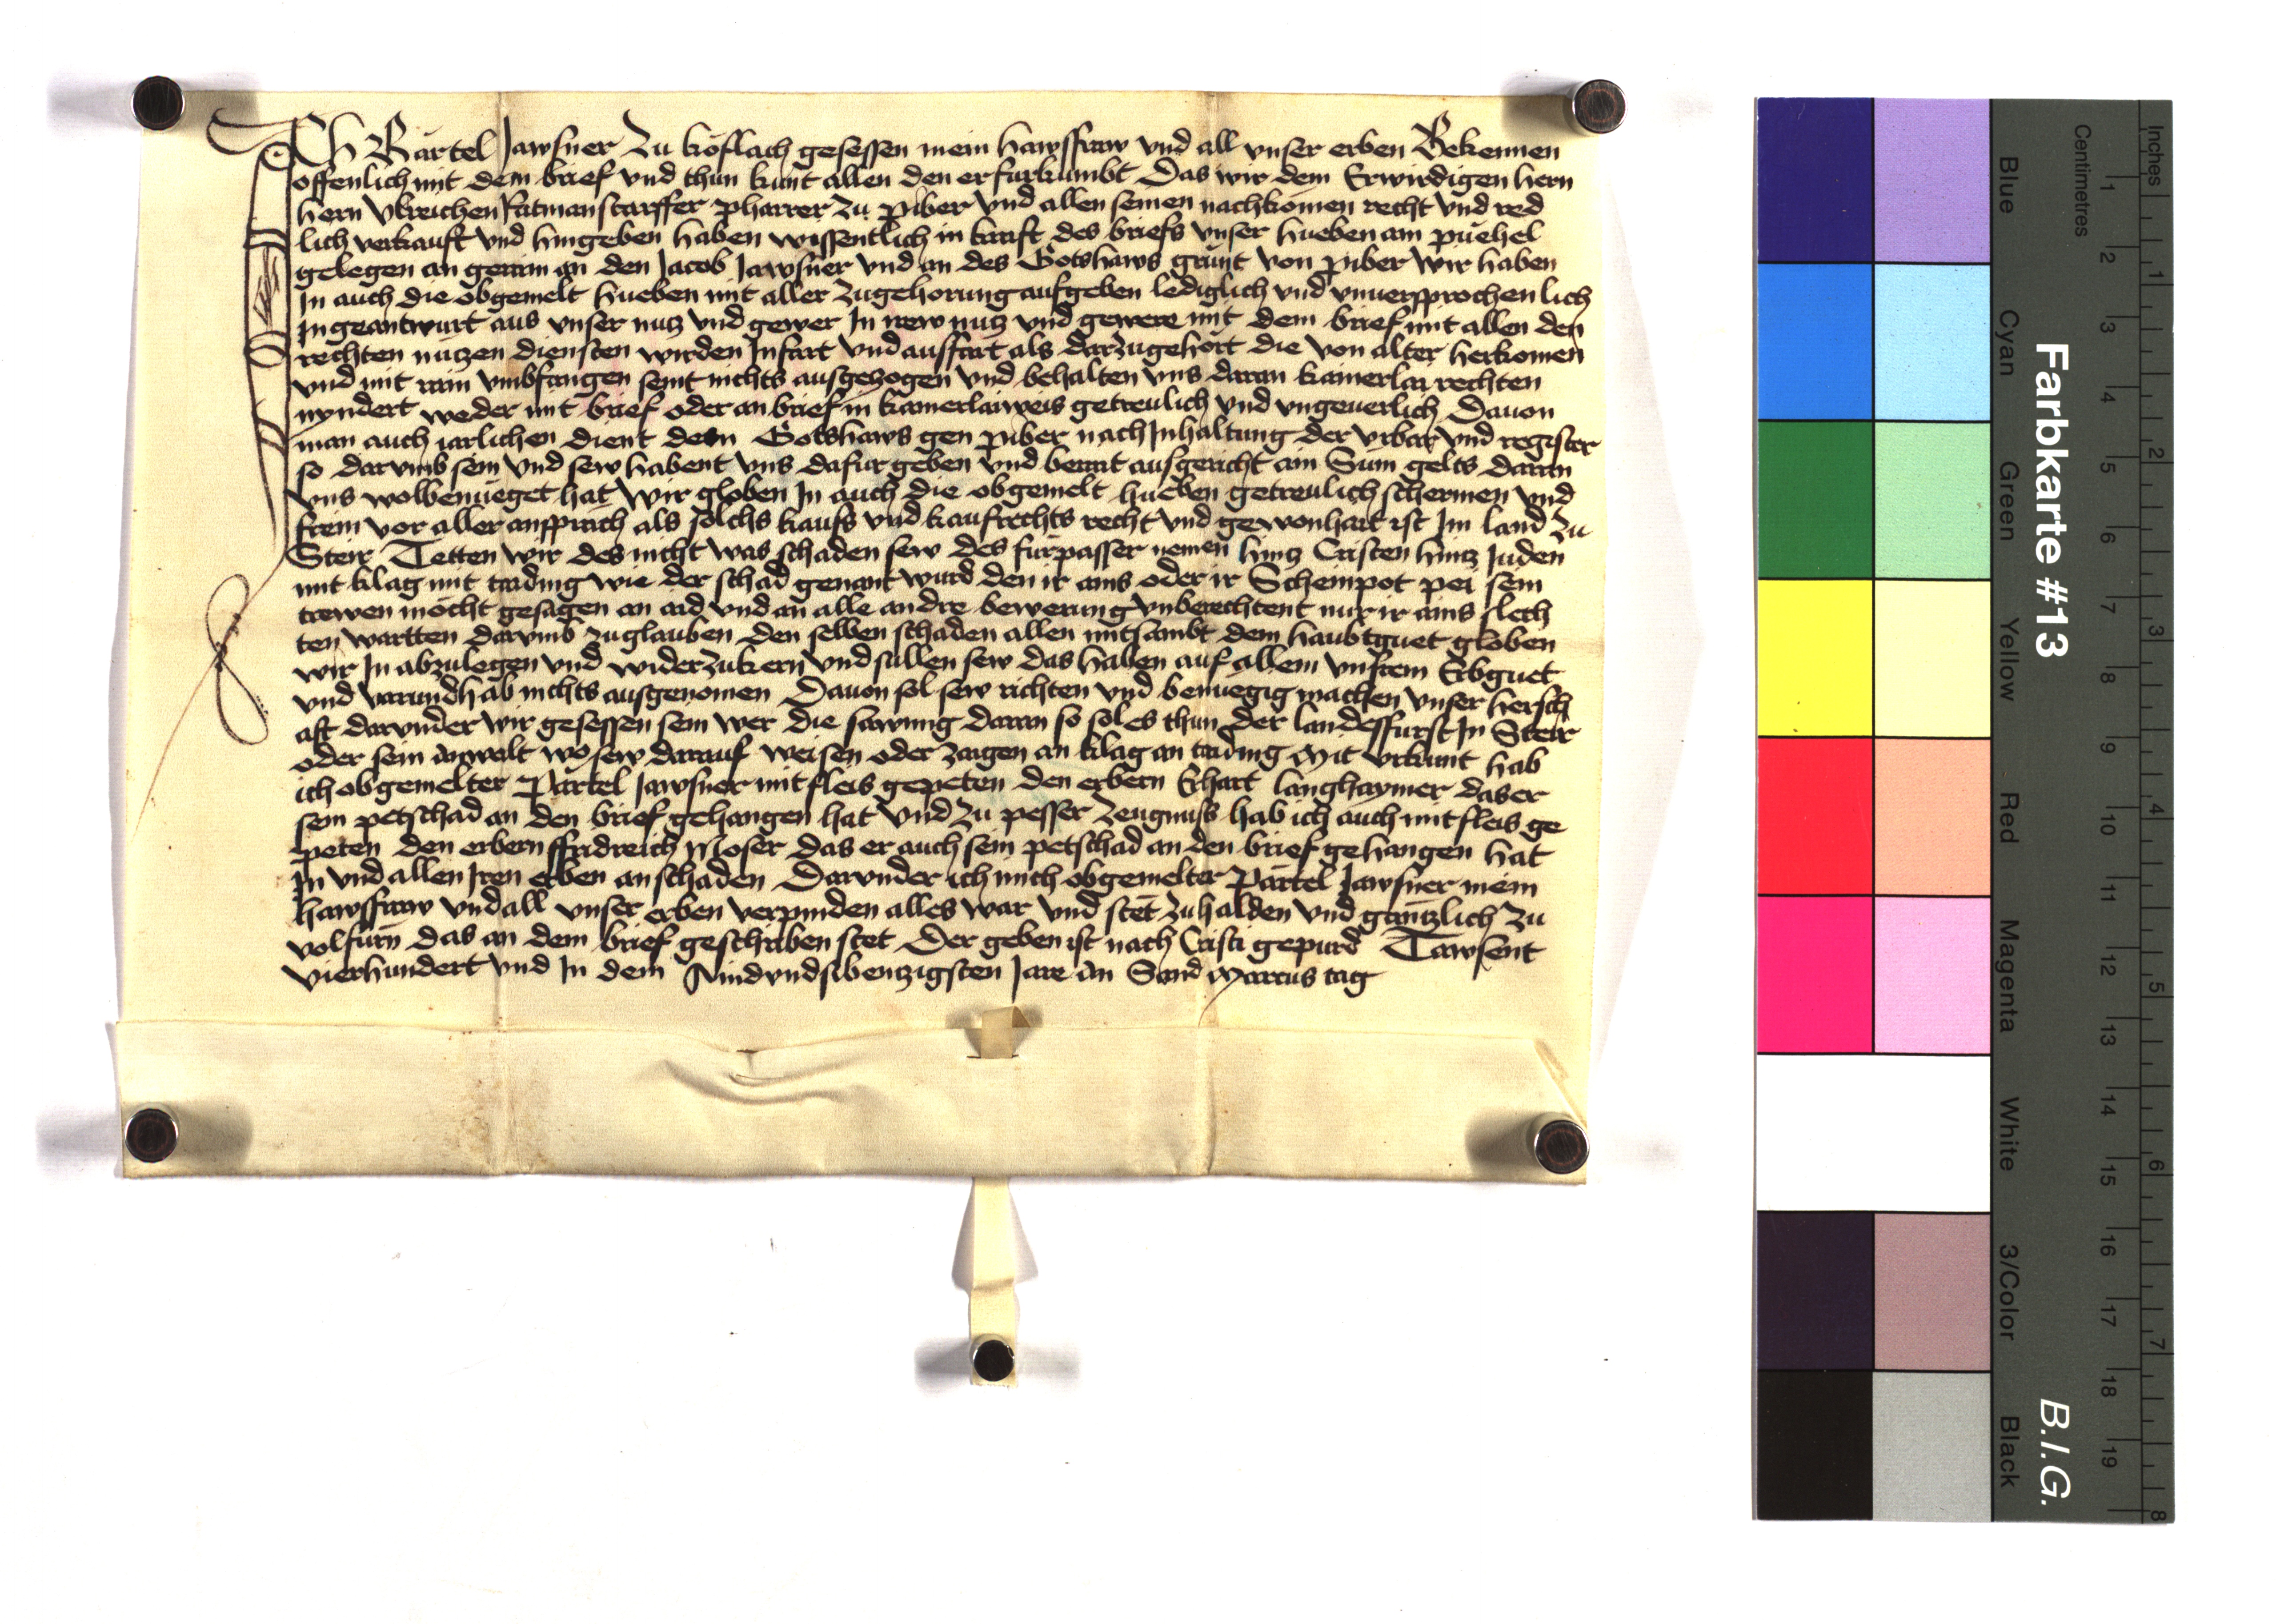 Ich Bartel Jawsner Zu koflach gesessen mein hawsfraw vnd all vnser erben Bekennen
offenlich mit dem brief vnd thun kunt allen den er furkumbt Das wir dem Erwirdigen hern
hern Vlreichen Ratmanstorffer pharrer Zu piber vnd allen seinen nachkomen recht vnd red
lich verkauft vnd hingeben haben wissentlich in kraft des briefs vnser hueben am püehel
gelegen an gerain an den Jacob Jawsner vnd an des Gotshaws grunt von piber wir haben
In auch die obgemelt hueben mit aller Zugehorung aufgeben lediglich vnd vnuersprochenlich
Ingeantwurt aus vnser nutz vnd gewer In irew nutz vnd gewere mit dem brief mit allen den
rechten nutzen diensten wirden Infart vnd ausfart als darzugehort die von alter herkomen
vnd mit rain vmbfangen seint nichts ausgezogen vnd behalten vns daran kainerlai rechten
nyndert weder mit brief oder an brief in kainerlaiweis getreulich vnd vngeuerlich Dauon
man auch iarlichen dient dem Gotshaws gen piber nach Inhaltung der vrbar vnd register
so darvmb sein vnd sew habent vns dafur geben vnd berait ausgericht ain Sum gelts daran
vns wolbenueget hat wir globen In auch die obgemelt hueben getreulich schermen vnd
frein vor aller ansprach als solchs kaufs vnd kaufrechts recht vnd gewonhait ist Im land Zu
Steir Tetten wir des nicht was schaden sew des furpasser nemen hintz Cristen hintz Juden
mit klag mit taiding wie der schad genant wurd den ir ains oder ir Scheinpot pei sein
trewen mocht gesagen an aid vnd an alle andre bewerung vnberechtent nur ir ains slech
ten wartten darvmb zuglauben den selben schaden allen mitsambt dem haubtguet globen
wir In abzulegen vnd widerzukern vnd sullen sew das haben auf allem vnsrem Erbguet
vnd varundhab nichts ausgenomen Dauon sol sew richten vnd benuegig machen vnser hersch
aft darvnder wir gesessen sein wer die sawmig daran so sol es thun der landesfurst In Steir
oder sein anwalt wo sew darauf weisen oder zaigen an klag an taiding Mit vrkunt hab
ich obgemelter Partel Jawsner mit fleis gepeten den erbern Erhart langhaymer das er
sein petschad an den brief gehangen hat vnd Zu pesser Zeugnuss hab ich auch mit fleis ge
peten den erbern ffridreich Moser das er auch sein petschad an den brief gehangen hat
In vnd allen Iren erben an schaden Darvnder ich mich obgemelter Partel Jawsner mein
hawsfraw vnd all vnser erben verpinden alles war vnd stet zuhalden vnd gäntzlich Zu
volfurn das an dem brief geschriben stet Der geben ist nach Cristi gepurd Tawsent
vierhundert vnd In dem Aindvndsibenzigsten Jare An Sand Marcus tag
Farbkarte #13
B.I.G.
Centimetres
Inches
Blue
Cyan
Green
Yellow
Red
Magenta
White
3/Color
Black
1 2 3 4 5 6 7 8 9 10 11 12 13 14 15 16 17 18 19
1 2 3 4 5 6 7 8